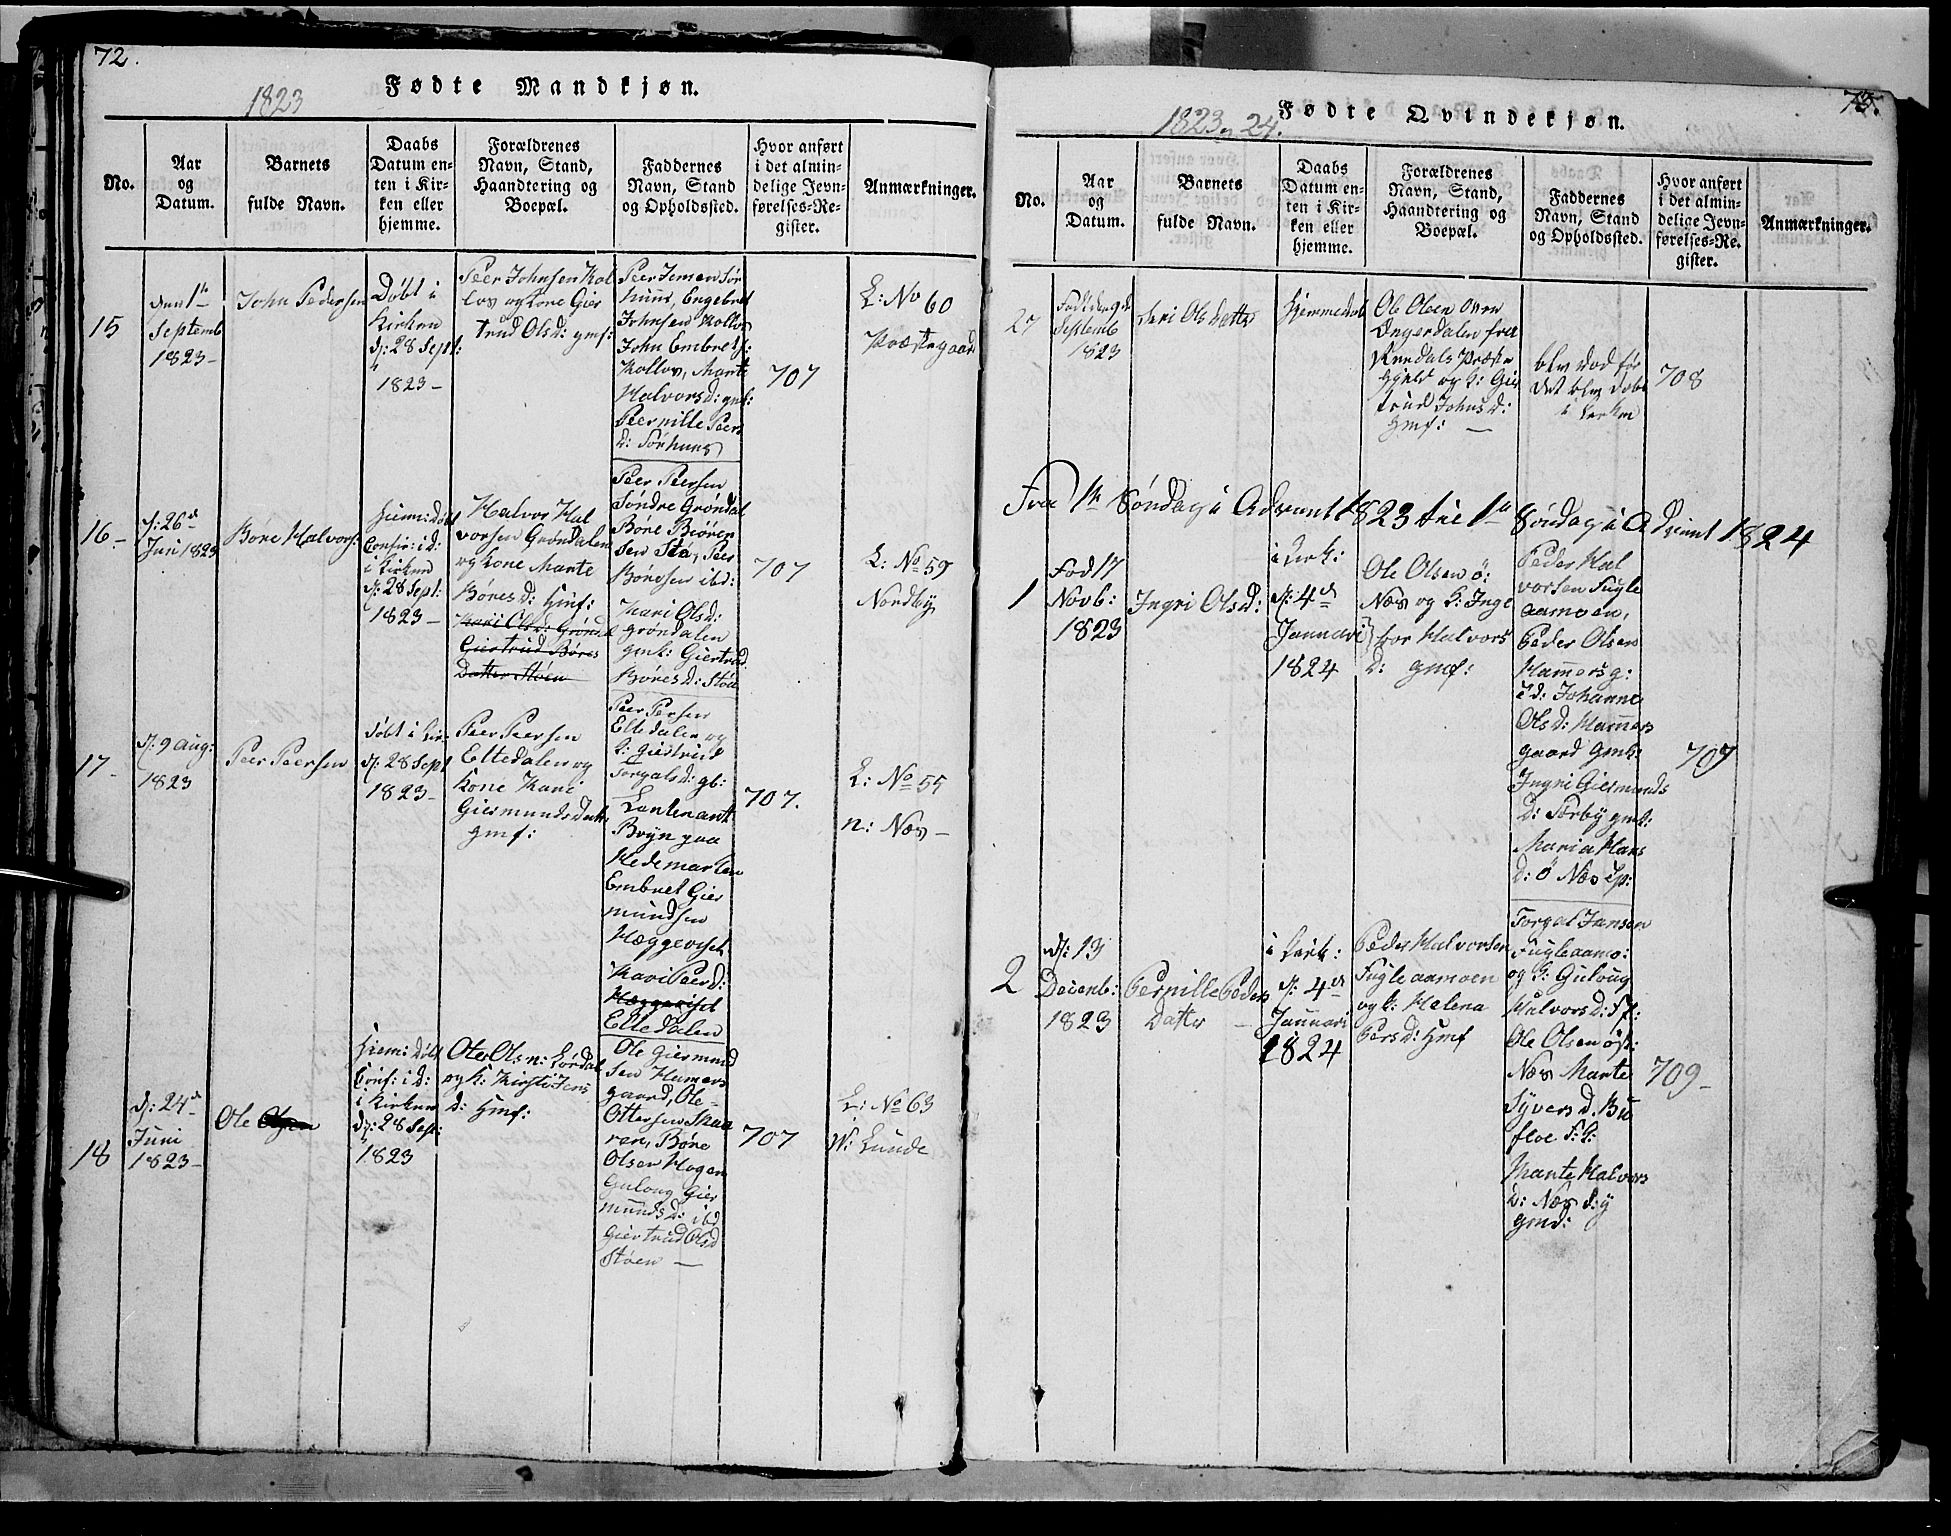 72.
Fødte Mandkjøn.
1823
No.
Aar
og
Datum.
Barnets
fulde Navn.
Daabs
Datum en-
ten i Kir-
ken eller
hjemme.
Forældrenes
Navn, Stand,
Haandtering og
Boepæl.
Faddernes
Navn, Stand
og Opholdssted.
Hvor anført
i det almin-
delige Jevn-
førelses-Re-
gister.
Anmærkninger.
15
den 1te
Septemb
1823-
John Pedersen
Døbt i
Kirken
d: 28 Sept:
1823-
Peer Johnsen Kol
los og Kone Gier
trud Olsd: gmf:
Peer Jensen Sør
huus, Engebret
Johnsen Kollos
John Embrets:
Kollos, Marte
Halvorsd: gmf:
Peernille Peers
d: Sørhuus
707
L: No 60
Præstegaard
16-
d: 26d
Juni 1823
Børe Halvors:
Hiem: Døbt
Confir: i d:
i Kirken
d: 28 Sept:
1823-
Halvor Hal
vorsen Grøndalen
og Kone Marte
Børesd: Gmf:
Kari Olsd: Grønd
Giertrud Børes
Datter Støen
Peer Peersen
Søndre Grøndal
Børe Biørn
sen Stø, Peer
Børesen ibd:
Kari Olsd:
Grøndalen
gmk: Giertrud
Børesd: Støe
707
L: No 59
Nordby
17-
d: 9 aug:
1823
Peer Peersen
Døbt i Kir
d: 28 Sept
1823-
Peer Peersen
Elledalen og
Kone Kari
Giermundsdatt:
gmf:
Peer Persen
Elledalen og
k: Giertrud
Torgalsd: gb:
Leutenant
Bryn paa
Hedemarken
Embret Gier
mundsen
Hæggeriset
Kari Peersd:
Hæggeriset
Elledalen
707.
L: No 55
n: Næs-
18
d: 24d
Juni
1823-
Ole Olsen
Hiem: Døbt
Conf: i d:
i Kirken
d: 28 Sept:
1823
Ole Olsn: Lørdal
og k: Kirsti Jens
d: Gmf:
Ole Giermund
sen Hamers
gaard, Ole-
Ottersen Skaa
ren, Børe
Olsen Hagen
Guloug Gier
mundsd: ibd
Giertrud Olsd
Støen —
707
L: No 63
N: Lunde
73.
Fødte Qvindekjøn.
1823 og 24.
No.
Aar
og
Datum.
Barnets
fulde Navn.
Daabs
Datum en-
ten i Kir-
ken eller
hjemme.
Forældrenes
Navn, Stand,
Haandtering og
Boepæl.
Faddernes
Navn, Stand
og Opholdssted.
Hvor anført
i det almin-
delige Jevn-
førelses-Re-
gister.
Anmærkninger.
27
Født den 9de
Septemb
1823
Kari Olsdatter
Hiemmedøbt
Ole Olsen Ovren
Engerdalen fra
Rendals Præste
gjeld og k: Gier
trud Johnsd:
gmf: —
blev død før
det blev døbt
i Kirken
708
Fra 1te Søndag i Advent 1823 til 1te Søndag i Advent 1824
1
Fød 17
Novb:
1823
Ingri Olsd:
i Kirk:
d: 4d
Januari
1824
Ole Olsen ø:
Næs og k: Inge
bor Halvors
d: gmf:
Peder Hal
vorsen Fugle
aamoen,
Peder Olsen
Hamersg:
i d: Johanne
Olsd: Hamers
gaard gmk:
Ingri Giermunds
d: Sørby gmk:
Maria Hans
d: Ø Næs ep:
707
2
d: 13
Decenb:
1823
Pernille Peders
Datter —
i Kirk:
d: 4d
Januari
1824
Peder Halvorsen
Fugleaamoen
og k: Helena
Persd: Gmf
Torgal Jensen
Fugleaamo:
og k: Guloug
Halvorsd: S f:
Ole Olsen øst:
Næs Marte
Syversd. Bu
floe S: k:
Marte Halvors
d: Næs S: y
gmd:
709-